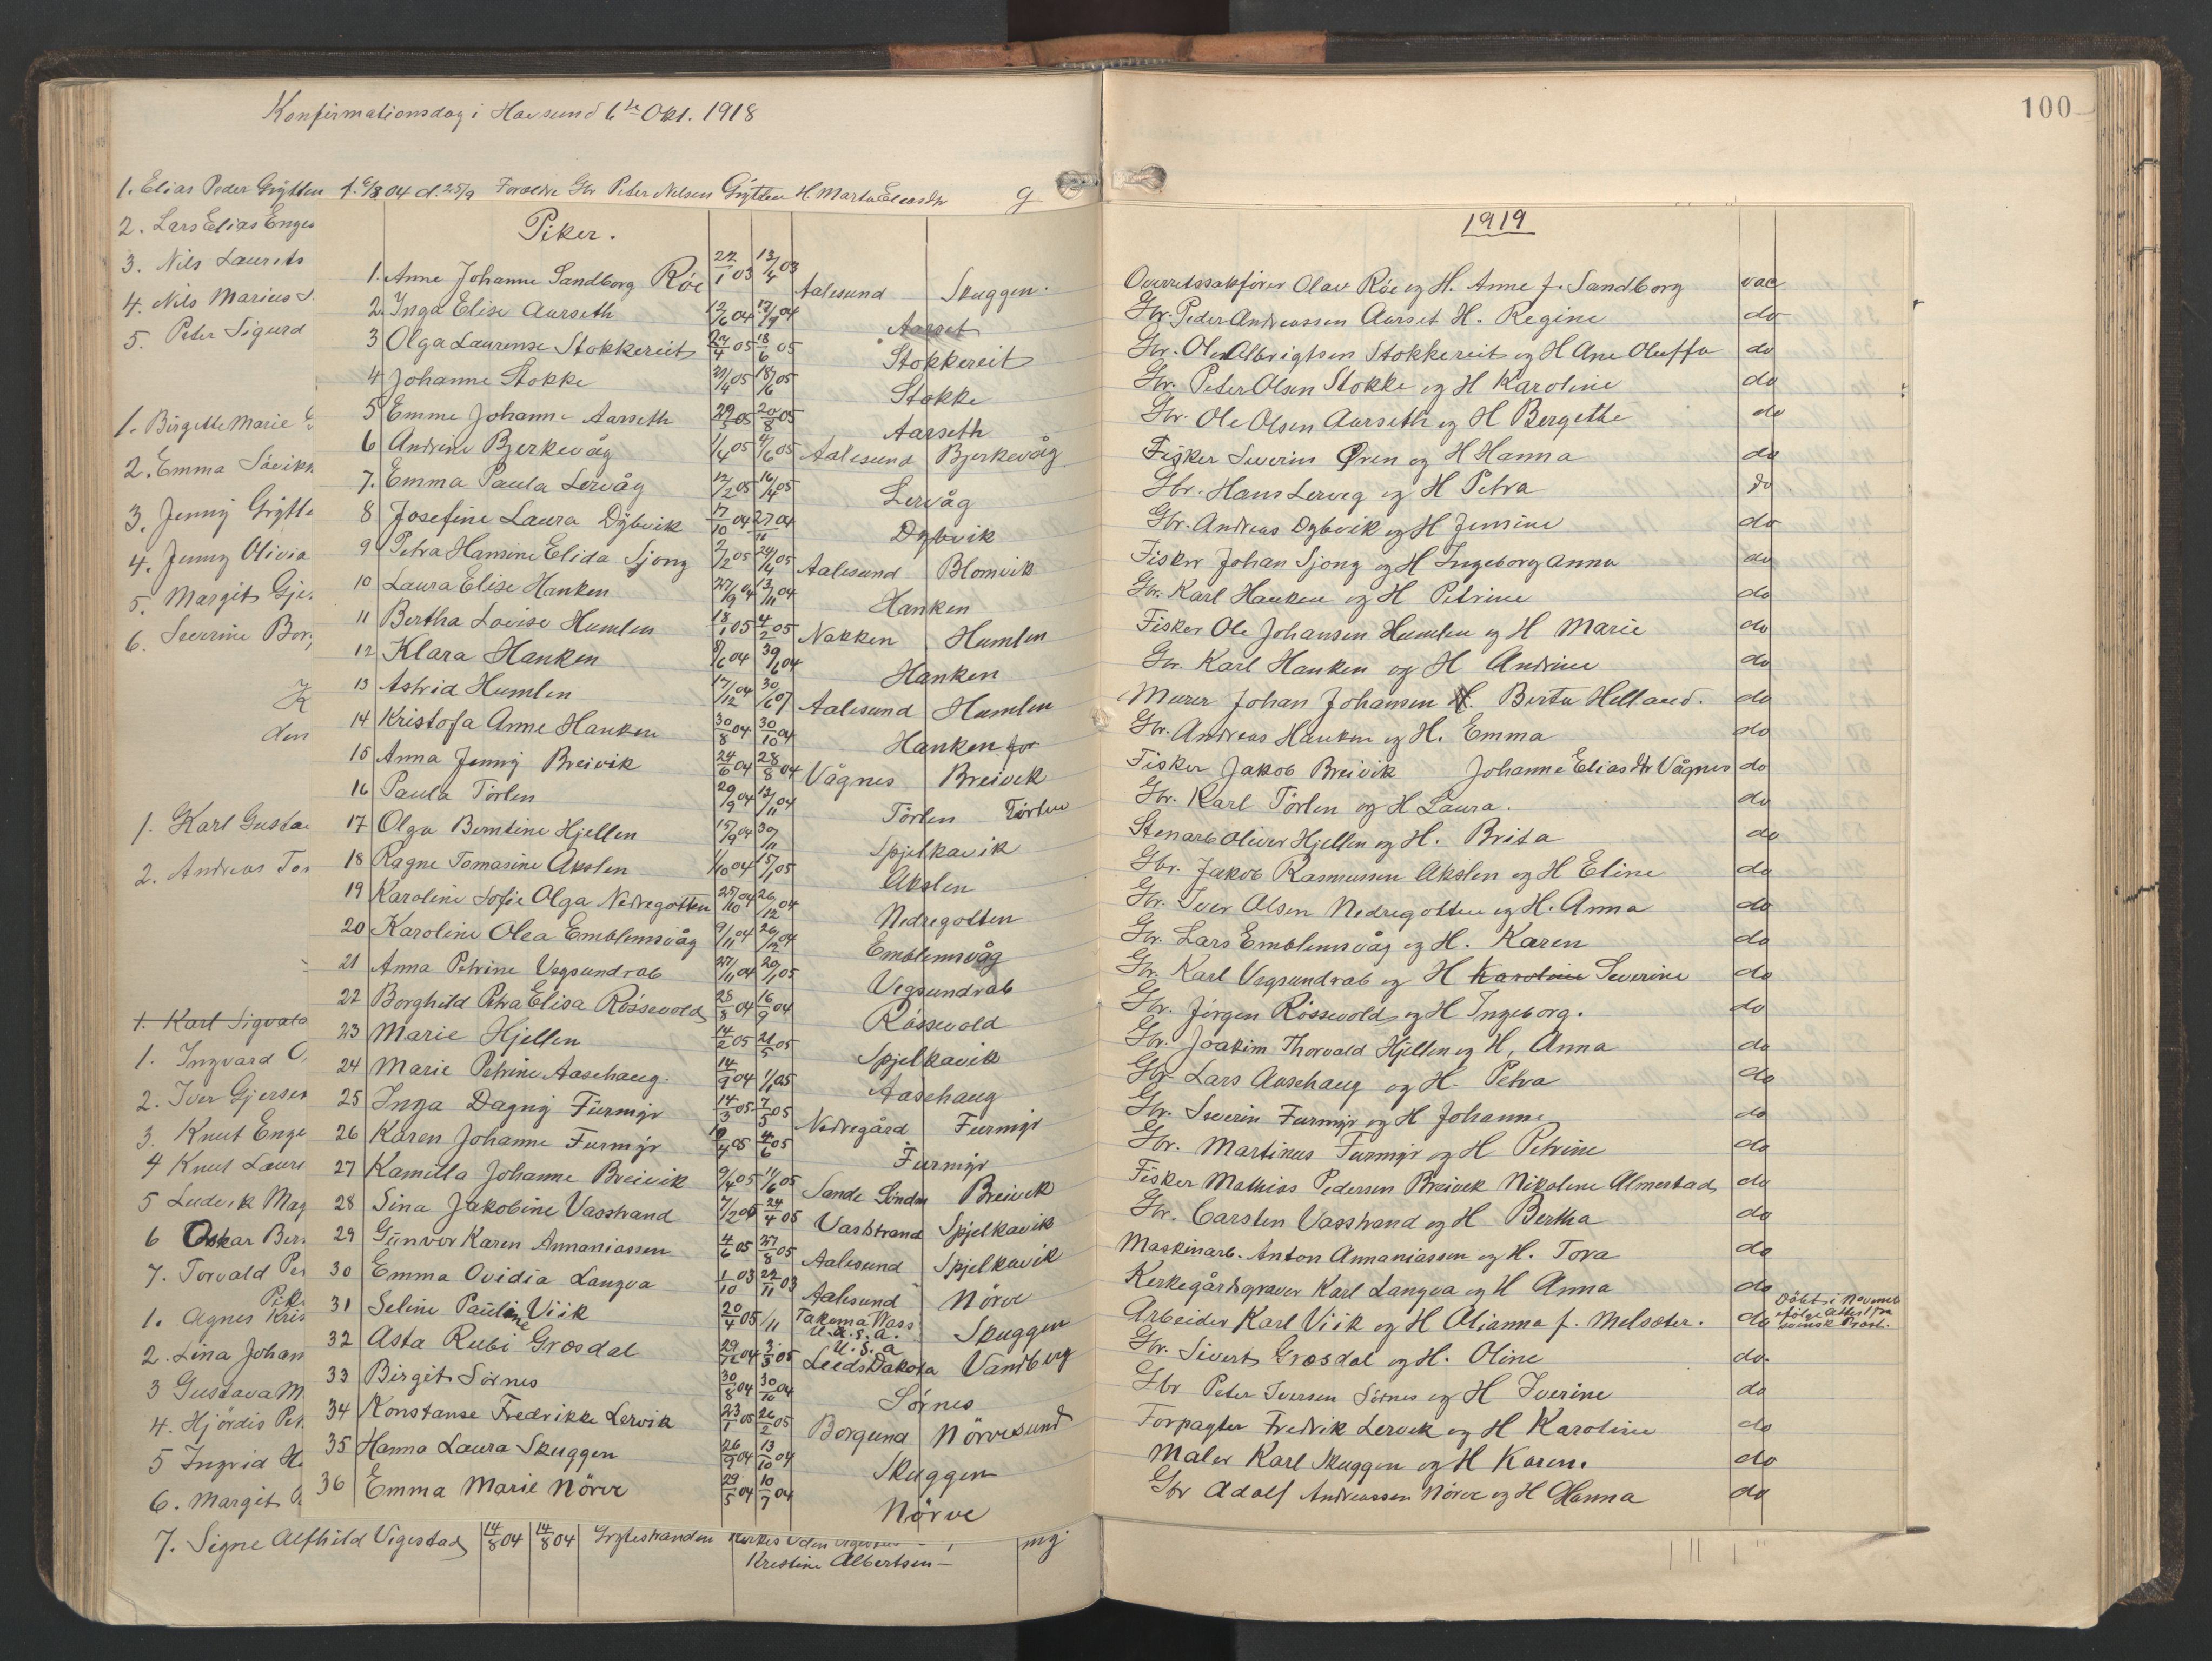 Konfirmationsdag i Havsund 6te Okt. 1918
100
1. Elias Peder Grytten f. 6/3 04 d. 25/9 Forældre Gbr Peter Nilsen Grytten H. Marta Eliasdtr g
2. Lars Elias Enges
3. Nils Laurits
4. Nils Marius
5. Peter Sigurd
1. Birgette Marie
2. Emma Søvikn
3. Jenny Grytte
4. Jenny Olivia
5. Margit Gje
6. Severine Bor
K
den
1. Karl Gustav
2. Andreas Tor
1. Karl Sigvald
1. Ingvard O
2. Iver Gjerse
3. Knut Enge
4 Knut Laur
5 Ludvik Mag
6 Oskar Ber
7. Torvald Per
Pike
1. Agnes Kris
2. Lina Johan
3 Gustava M
4. Hjördis Pet
5 Ingrid H
6. Margit
Piker.
1919
1. Anne Johanne Sandborg Röe 22/1 03 13/4 03 Aalesund Skuggen. Overretssakfører Olav Röe og H. Anne f. Sandborg vac
2. Inga Elise Aarseth 12/6 04 17/9 04 Aarset Gbr. Peder Andreassen Aarset H. Regine do
3 Olga Laurense Stokkereit 22/4 05 18/6 05 Stokkereit Gbr. Ole Albrigtsen Stokkereit og H Ane Oluffa do
4 Johanne Stokke 21/4 05 18/6 05 Stokke Gbr. Peter Olsen Stokke og H Karoline do
5 Emme Johanne Aarseth 29/5 05 20/8 05 Aarseth Gbr. Ole Olsen Aarseth og H Bergethe do
6 Andrine Bjerkevåg 1/4 05 4/6 05 Aalesund Bjerkevåg Fisker Severin Øren og H Hanna do
7. Emma Paula Lervåg 12/2 05 16/4 05 Lervåg Gbr. Hans Lerveg og H Petra do
8 Josefine Laura Dybvik 17/10 04 27/11 04 Dybvik Gbr. Andreas Dybvik og H Jensine do
9 Petra Hansine Elida Sjong 2/2 05 24/4 05 Aalesund Blomvik Fisker Johan Sjong og H Ingeborg Anna do
10 Laura Elise Hanken 27/9 04 13/11 04 Hanken Gbr. Karl Hanken og H Petrine do
11 Bertha Lovise Humlen 18/1 05 4/2 05 Nakken Humlen Fisker Ole Johansen Humlen og H Marie do
12 Klara Hanken 8/6 04 04 Hanken Gbr. Karl Hanken og H Andrine do
13 Astrid Humlen 17/12 04 30/6 07 Aalesund Humlen Murer Johan Johansen H. Berta Helland. do
14 Kristofa Anne Hanken 30/8 04 30/10 04 Hanken for Gbr. Andreas Hanken og H. Emma do
15 Anna Jenny Breivik 24/6 04 28/8 04 Vågnes Breivik Fisker Jakob Breivik Johanne Eliasdtr Vågnes do
16 Paula Törlen 29/9 04 13/11 04 Törlen Törlen Gbr. Karl Törlen og H Laura. do
17 Olga Berntine Hjellen 15/9 04 30/11 Spjelkavik Stenarb Oliver Hjellen og H. Brita do
18 Ragne Tomasine Akslen 1/10 04 15/1 05 Akslen Gbr. Jakob Rasmussen Akslen og H Eline do
19 Karoline Sofie Olga Nedregotten 25/10 04 26/12 04 Nedregotten Gbr. Iver Olsen Nedregotten og H. Anna do
20 Karoline Olea Emblemsvåg 9/11 04 26/12 04 Emblemsvåg Gbr. Lars Emblemsvåg og H. Karen do
21 Anna Petrine Vegsundrab 27/11 04 29/1 05 Vegsundrab Gbr. Karl Vegsundrab og H Karoline Severine do
22 Borghild Petra Elisa Røssevold 25/8 04 16/9 04 Røssevold Gbr. Jörgen Røssevold og H Ingeborg. do
23 Marie Hjellen 14/2 05 21/5 05 Spjelkavik Gbr. Joakim Thorvald Hjellen og H, Anna do
24 Marie Petrine Aasehaug. 14/9 04 1/1 05 Aasehaug Gbr. Lars Aasehaug og H. Petra do
25 Inga Dagny Furmyr 14/3 05 7/5 05 Nedregård Furmyr Gbr. Severin Furmyr og H Johanne do
26 Karen Johanne Furmyr 19/4 05 4/6 05 Furmyr Gbr. Martinus Furmyr og H Petrine do
27 Kamilla Johanne Breivik 9/4 05 11/6 05 Sande Söndm Breivik Fisker Mathias Pedersen Breivik Nikoline Almestad do
28 Sina Jakobine Vasstrand 7/2 05 24/4 05 Vasstrand Spjelkavik Gbr. Carsten Vasstrand og H Bertha do
29 Gunvor Karen Annaniassen 4/6 05 27/8 05 Aalesund Spjelkavik Maskinarb. Anton Annaniassen og H. Tora do
30 Emma Ovidia Langva 1/10 03 22/11 03 Aalesund Nörve Kerkegårdsgraver Karl Langva og H Anna do
31 Seline Pauline Viik 20/4 05 /11 Takoma Wass. U.a.s.a. Skuggen Arbeider Karl Viik og H Alianna f. Melsæter. do Döbt i Novemb ifölge Attest fra norsk Præst.
32 Asta Rubi Grosdal 29/12 04 3/3 05 U.S.a Leeds Dakota Vandberg Gbr. Sivert Grosdal og H. Oline do.
33 Birgit Sörnes 30/8 04 30/10 04 Sörnes Gbr Peter Iversen Sörnes og H Iverine do
34 Konstanse Fredrikke Lervik 23/1 05 26/2 05 Borgund Nörvesund Forpagter Fredrik Lervik og H Karoline do
35 Hanna Laura Skuggen 26/9 04 13/10 04 Skuggen Maler Karl Skuggen og H Karen. do
36 Emma Marie Nörve 29/5 04 10/7 04 Nörve Gbr Adolf Andreassen Nörve og H Hanna do
7. Signe Alfhild Vigestad 14/8 04 14/8 04 Grytestranden Kirkes
Kristine Albertsen — mg